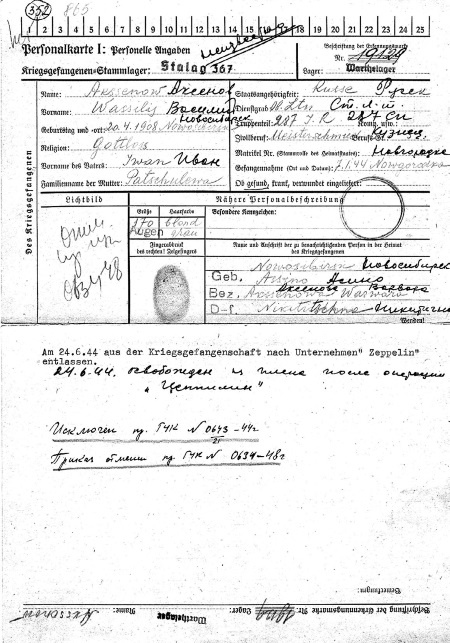 352 865
1 2 3 4 5 6 7 8 9 10 11 12 13 14 15 16 17 18 19 20 21 22 23 24 25
Personalkarte I: Personelle Angaben
Beschriftung der Erkennungsmarke
Nr. 19129
Kriegsgefangenen-Stammlager: Stalag 367
Lager: Warthelager
Des Kriegsgefangenen
Name: Akssenow Аксенов
Staatsangehörigkeit: Russe Русск
Vorname: Wassilij Василий
Dienstgrad: O.Ltn Ст. л-т
Новосибирск
Truppenteil: 287 J.R 287 СП
Geburtstag und -ort: 20.4.1908
Zivilberuf: Кузнец
Religion: Gottlos
Matrikel Nr. (Stammrolle des Heimatstaates)
Vorname des Vaters: Iwan Иван
Gefangennahme (Ort und Datum): 7.1.44
Familienname der Mutter:
Ob gesund, krank, verwundet eingeliefert:
Lichtbild
Nähere Personalbeschreibung
Größe Haarfarbe Besondere Kennzeichen:
170 blond
Augen grau
Fingerabdruck
des rechten! Zeigefingers
Name und Anschrift der zu benachrichtigenden Person in der Heimat
des Kriegsgefangenen
Nowosibirsk Новосибирск
Geb. Assino Асино
Аксенова Варвара
Bez. Akssenowa Warwara
D-f. Nikititschna Никитична
Werden!
Am 24.6.44 aus der Kriegsgefangenschaft nach Unternehmen" Zeppelin"
entlassen.
24.6.44. освобожден из плена после операции
„Цеппелин"
Исключен пр. ГУК N 0643-44г
21
Приказ отменен пр ГУК N 0634-48г
Bemerkungen:
Beschriftung der Erkennungsmarke Nr. 19129 Lager: Warthelager Name: Akssenow